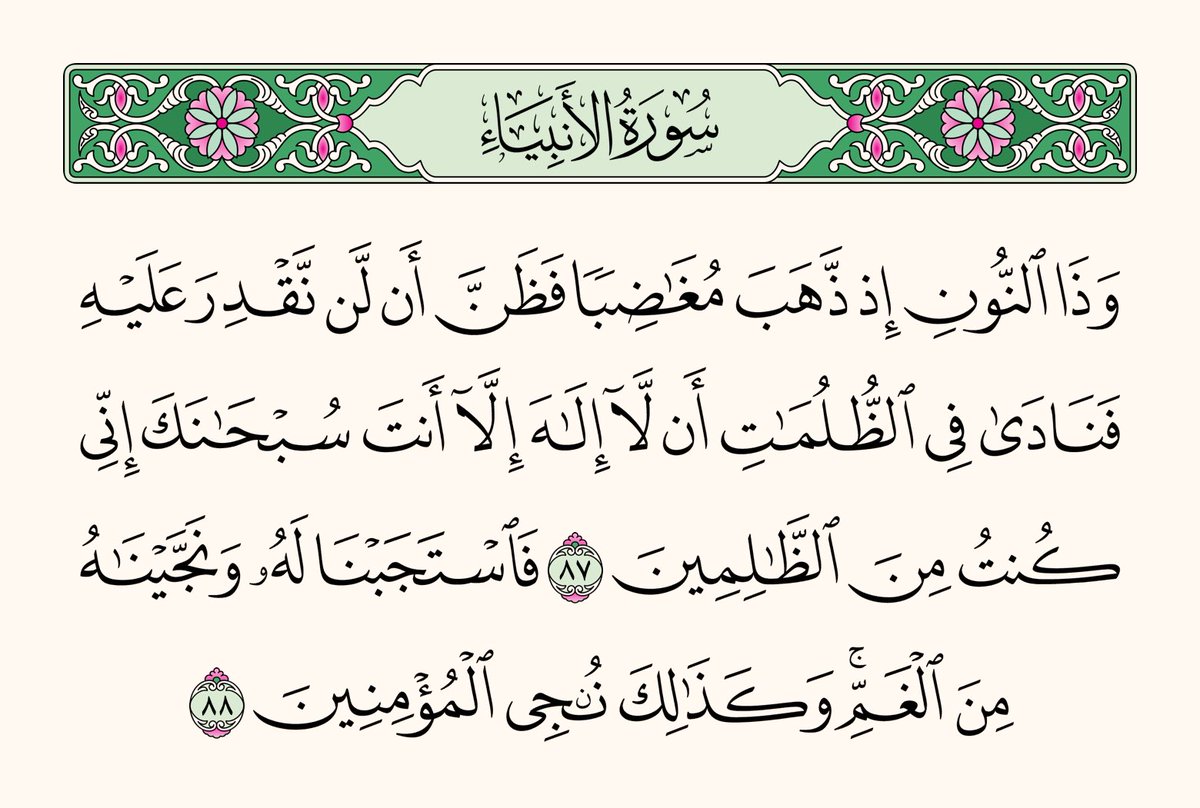 سُورَةُ الأَنبِيَاءِ
وَذَا ٱلنُّونِ إِذ ذَّهَبَ مُغَـٰضِبًا فَظَنَّ أَن لَّن نَّقْدِرَ عَلَيْهِ
فَنَادَىٰ فِى ٱلظُّلُمَـٰتِ أَن لَّآ إِلَـٰهَ إِلَّآ أَنتَ سُبْحَـٰنَكَ إِنِّى
كُنتُ مِنَ ٱلظَّـٰلِمِينَ ٨٧ فَٱسْتَجَبْنَا لَهُۥ وَنَجَّيْنَـٰهُ
مِنَ ٱلْغَمِّ ۚ وَكَذَٰلِكَ نُـۨجِى ٱلْمُؤْمِنِينَ ٨٨